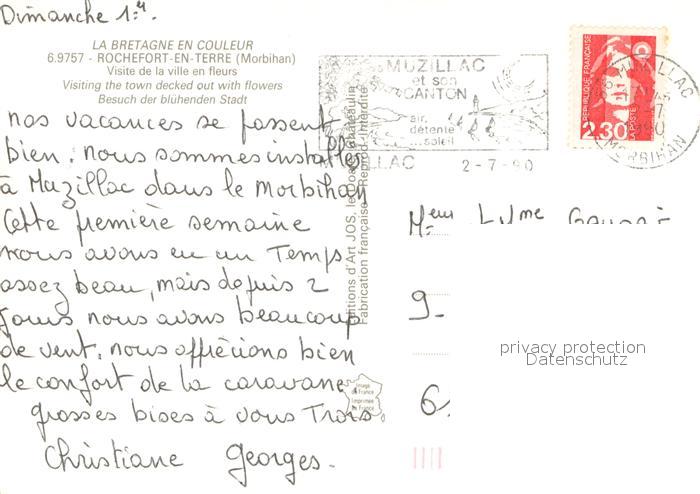 Dimanche 1er.
LA BRETAGNE EN COULEUR
6.9757 - ROCHEFORT-EN-TERRE (Morbihan)
Visite de la ville en fleurs
Visiting the town decked out with flowers
Besuch der blühenden Stadt
nos vacances se passent
bien. nous sommes installés
à Muzillac dans le Morbihan
Cette première semaine
nous avons eu un Temps
assez beau, mais depuis 2
jours nous avons beaucoup
de vent. nous apprécions bien
le confort de la caravane.
grosses bises à vous Trois.
Christiane Georges.
Editions d'Art JOS, le Doaré, Châteaulin
Fabrication française - Reprod. interdite
Image
de France
Imprimée
de France
MUZILLAC
et son
CANTON
air,
détente
...soleil
LLAC 2-7-90
REPUBLIQUE FRANÇAISE
LA POSTE
2,30
MUZILLAC
1990
MORBIHAN
Meur Mme
9-
6.
privacy protection
Datenschutz